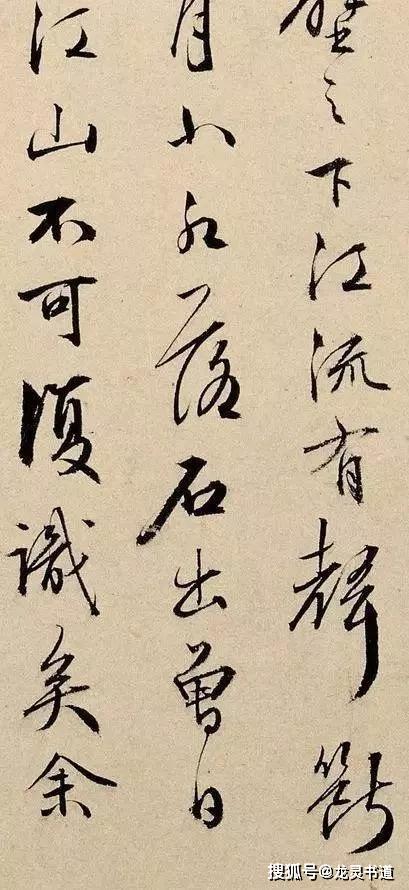 壁之下江流有聲斷
月小水落石出曾日
江山不可復識矣余
搜狐号@龙灵书道